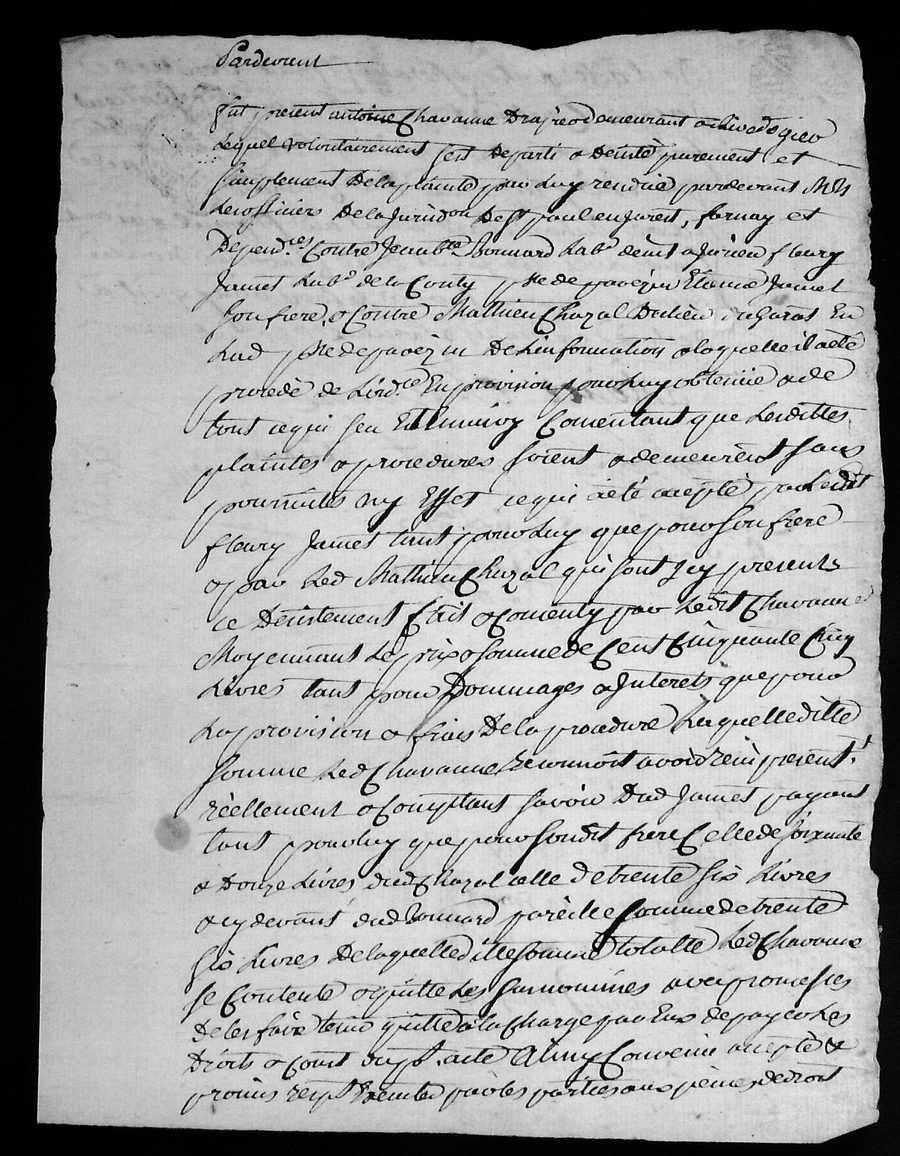 Pardevant
fut present antoine Chavanne Drapier demeurant a Rive de gier
Lequel volontairement sest departi & desisté purement et
simplement De la plainte par Luy rendue pardevant Mrs
Les officiers De la Jurisd.on De St paul en Jarest, farnay et
Depend.ces Contre Jean b.te Bonnard Lab.r deint a Jurieu fleury
Jamet Lab.r de la Conty p.sse de pavezin Etienne Jamet
son frere, & Contre Mathieu Chazal Dulieu du Garat En
Lad p.sse de pavezin De Linformation a laquelle il a eté
procedé de Lord.ce En provision par Luy obtenüe & de
tout ce qui sen Est Consentant que Lesdittes
plaintes & procedures soient & demeurent sans
poursuites ny Effet ce qui a eté accepté par Ledit
fleury Jamet tant pour Luy que pour son frere
& par Led Mathieu Chazal qui sont Icy presents
ce Desistement Etait & Consenty par Ledit Chavanne
Moyennant Le prix & somme de Cent Cinquante Cinq
Livres tant pour Dommages & Interets que pour
La provision & frais De la procedure Laquelle ditte
somme Led Chavanne Reconnoit avoir reçu present.t
réellement & Comptant savoir Dud Jamet payant
tant pour luy que pour sondit frere Celle de soixante
& Douze Livres dud Chazal celle de trente six Livres
& cy devant dud Bonnard pareille somme de trente
six Livres De laquelle ditte somme totalle Led Chavanne
se Contente & quitte Les surnommés avec promesses
De les faire tenir quitte a la Charge par Eux de payer Les
Droits & Cout du p.nt acte Ainsy Convenu accepté &
promis resp.t par les parties aux peines de droit